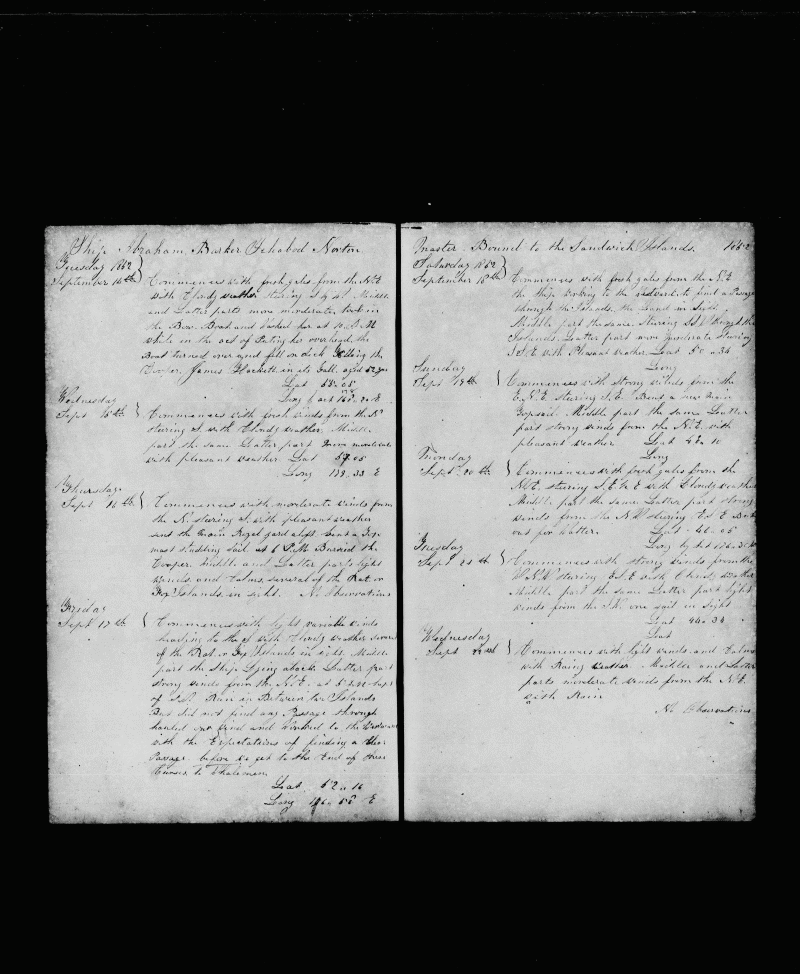 Ship Abraham Barker Ichabod Norton
Tuesday 1852
September 14th } Commences with fresh gales from the N.E
with Cloudy weather steering S by W. Middle
and Latter parts more moderate, took in
the Bow Boat and
while in the act of overhead, the
Boat turned over and fell on deck Killing the
Cooper, James Hackett
Lat 58 . 05
Long
Wednesday
Sept 15th } Commences with fresh winds from the N
steering S. with Cloudy weather, Middle
part the same Latter part more moderate
with pleasant weather Lat 05
Long 33 E
Thursday
Sept 16th } Commences with moderate winds from
the N. steering S. with pleasant weather
sent the Main Royal yard aloft bent a Fore
mast studding sail at 6 P.M. Buried the
Cooper. Middle and Latter parts light
winds and Calms, several of the Rat or
Fox Islands in sight. No Observations
Friday
Sept 17th } Commences with light variable winds
heading to the S with Cloudy weather several
of the Rat or Fox Islands in sight. Middle
part the ship Lying aback. Latter part
strong winds from the N.E. at
Run in Between two Islands
But did not find any Passage through
hauled out and worked to the Westward
with the Expectations of finding a
Passage before we get to the End of
Lat 52 . 16
Long E
Master Bound to the Sandwich Islands. 1852
Saturday 1852 }
September 18th Commences with fresh gales from the N.E
the ship working to the Westward to find a Passage
through the Islands, the Land in Sight
Middle part the same. Steering through the
Islands. Latter part more moderate steering
S.S.E. with Pleasant weather. Lat 50 . 34
Long
Sunday
Sept 19th } Commences with strong winds from the
E.N.E. steering S.E. Bent a new Main
Topsail. Middle part the same Latter
part strong winds from the N.E. with
pleasant weather Lat 48 . 10
Long
Monday
Sept 20th } Commences with fresh gales from the
N.E. steering S.E. by E with Cloudy weather
Middle part the same. Latter part strong
winds from the N.W steering
out for Water. Lat 46 . 05
Long
Tuesday
Sept 21st } Commences with strong winds from the
W.N.W steering E.S.E with Cloudy weather
Middle part the same Latter part light
winds from the one sail in Sight
Lat 44 . 34
Wednesday
Sept 22nd } Commences with light winds and Calms
with Rainy weather. Middle and Latter
parts moderate winds from the N.E.
with Rain
No Observations